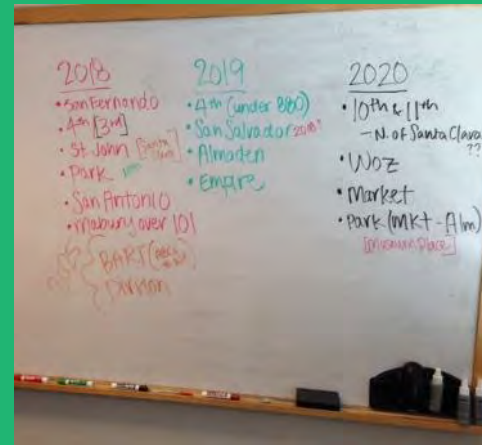 2018
• San Fernando
• 4th [3rd]
• St John [Santa
• Park
• San Antonio
• Mabury over 101
BART
2019
• 4th (under 880)
• San Salvador 2018?
• Almaden
• Empire
2020
• 10th & 11th
– N. of Santa Clara
??
• Woz
• Market
• Park (Mkt - Alm)
[Museum Place]